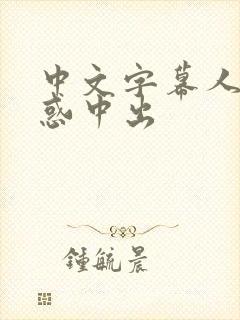 中文字幕人
惑中出
鍾毓晨